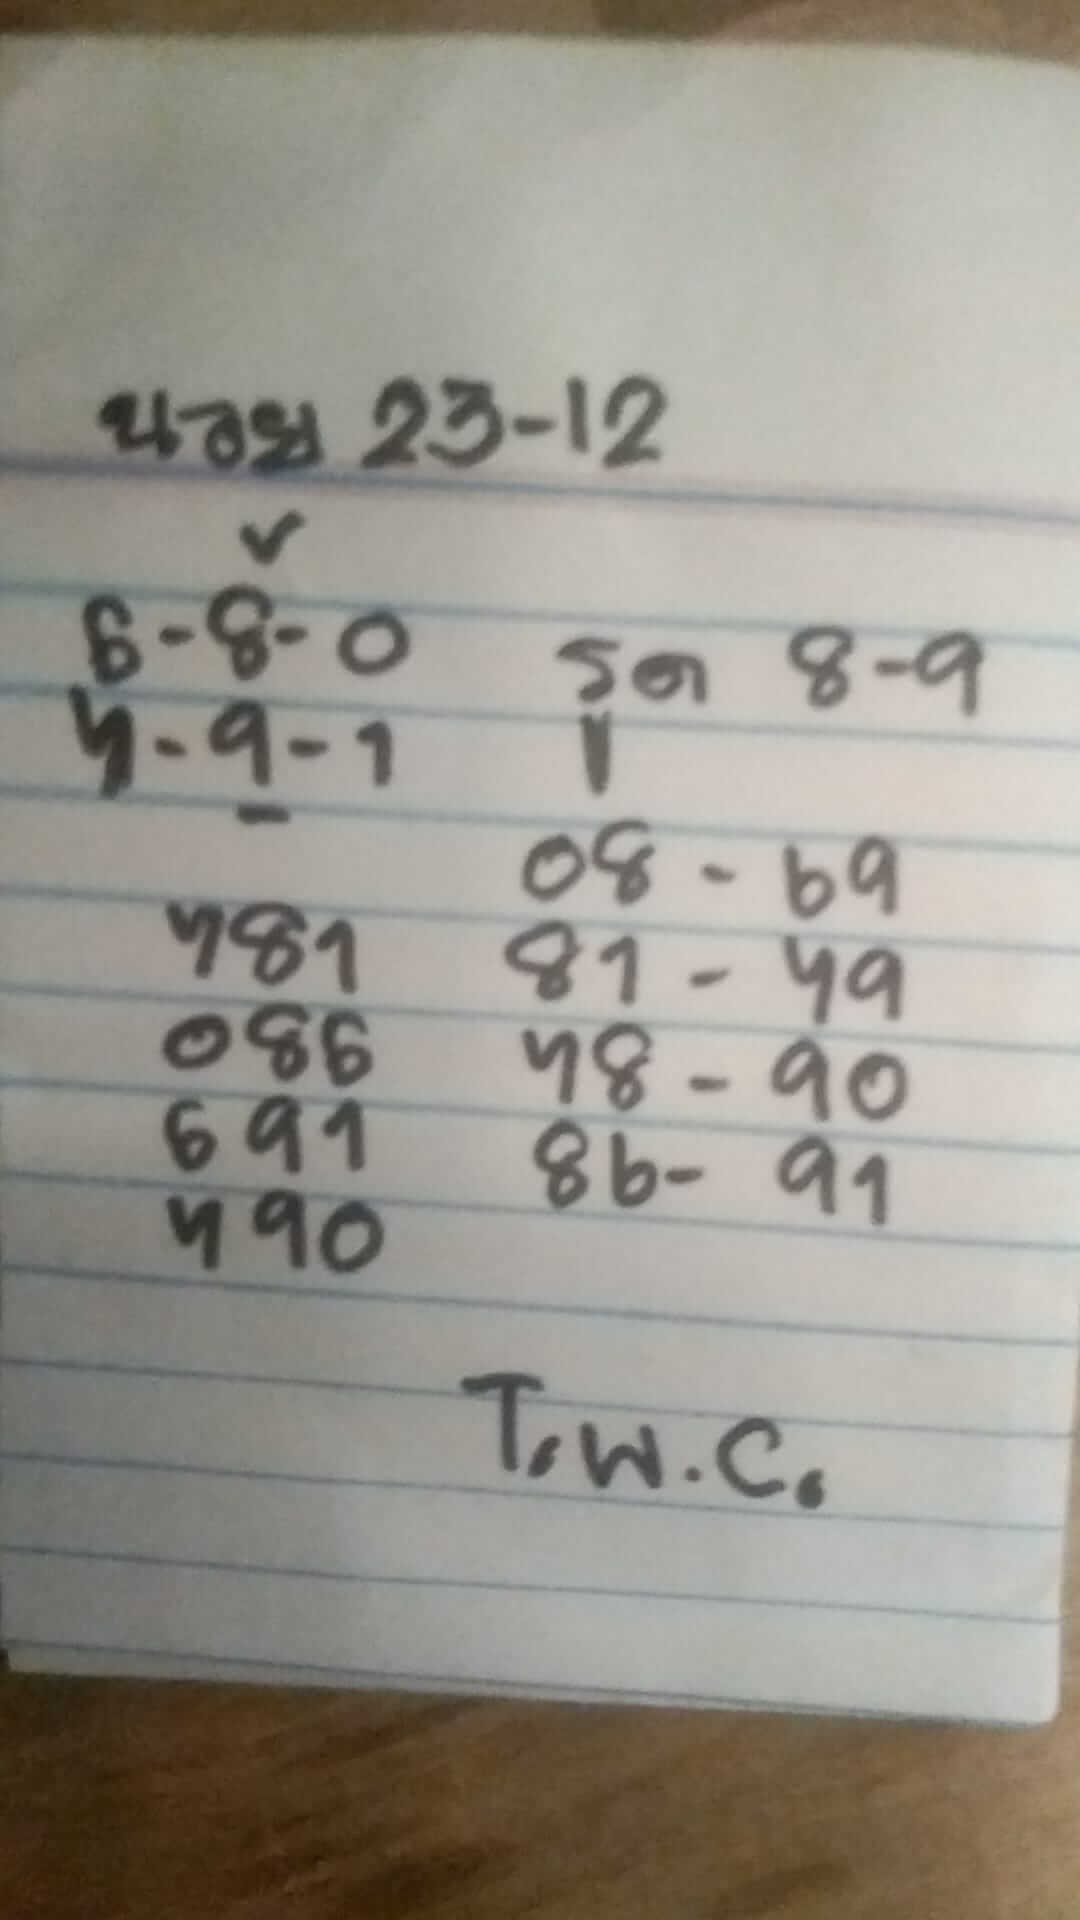 23-12
6-8-0 รูด 8-9
4-9-1
08 - 69
481 81 - 49
086 48 - 90
691 86 - 91
490
T.W.C.